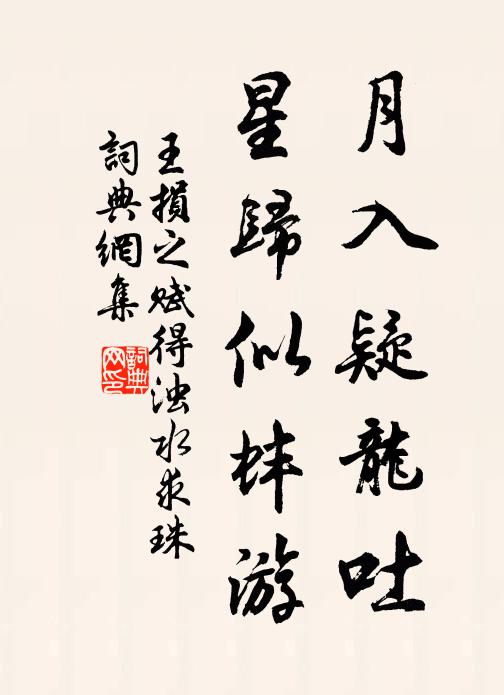 月入疑龍吐
星歸似蚌游
王損之賦得浊水求珠
詞典網集
詞典网印